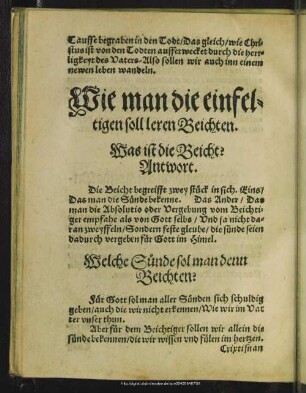 Tauffe begraben in den Todt/Das gleich/wie Chri-
stus ist von den Todten aufferwecket durch die herr-
ligkeyt des Vaters/Also sollen wir auch inn einem
newen leben wandeln.
Wie man die einfel-
tigen soll leren Beichten.
Was ist die Beicht?
Antwort.
Die Beicht begreifft zwey stück in sich. Eins/
Das man die Sünde bekenne. Das Ander/Das
man die Absolutio oder Vergebung vom Beichti-
ger empfahe als von Gott selbs/Und ja nicht da-
ran zweyffeln/Sondern feste gleube/die sünde seien
dadurch vergeben für Gott im Himel.
Welche Sünde sol man denn
Beichten?
Für Gott sol man aller Sünden sich schuldig
geben/auch die wir nicht erkennen/Wie wir im Vat-
ter unser thun.
Aber für dem Beichtiger sollen wir allein die
sünde bekennen/die wir wissen und fülen im hertzen.